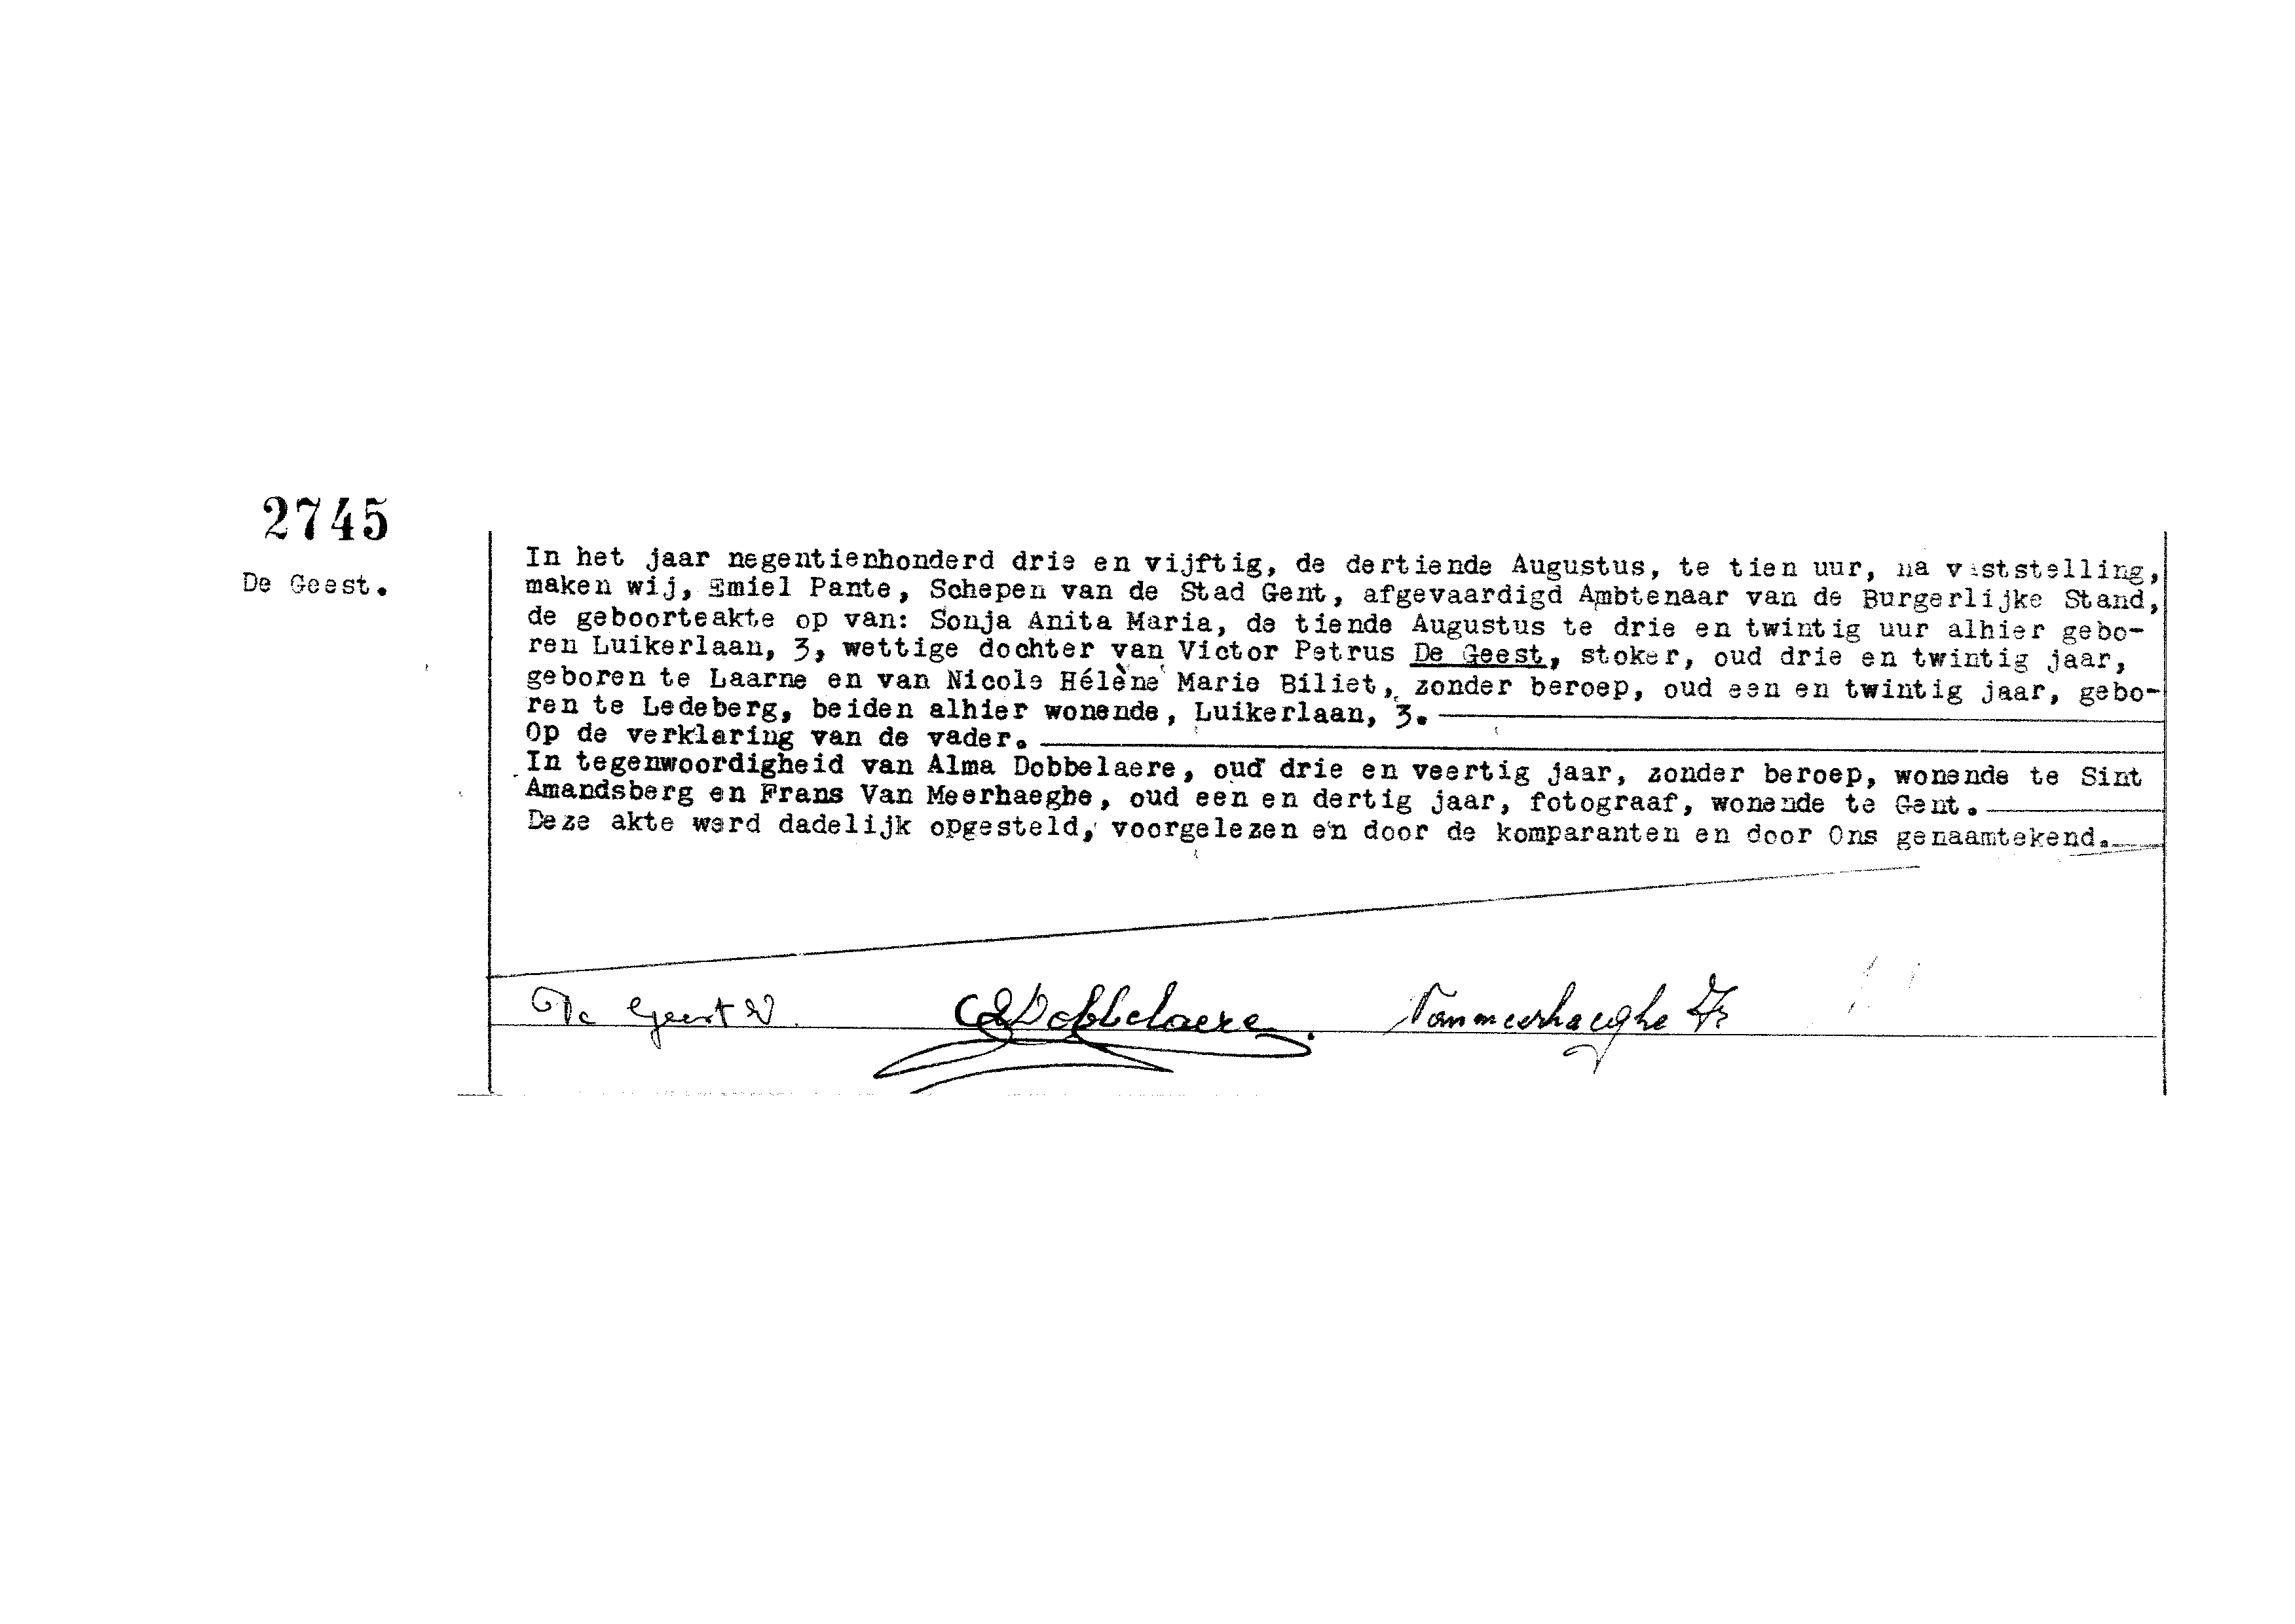 2745
De Geest.
In het jaar negentienhonderd drie en vijftig, de dertiende Augustus, te tien uur, na vaststelling,
maken wij, Emiel Pante, Schepen van de Stad Gent, afgevaardigd Ambtenaar van de Burgerlijke Stand,
de geboorteakte op van: Sonja Anita Maria, de tiende Augustus te drie en twintig uur alhier gebo-
ren Luikerlaan, 3, wettige dochter van Victor Petrus De Geest, stoker, oud drie en twintig jaar,
geboren te Laarne en van Nicole Hélène Marie Biliet, zonder beroep, oud een en twintig jaar, gebo-
ren te Ledeberg, beiden alhier wonende, Luikerlaan, 3.
Op de verklaring van de vader.
In tegenwoordigheid van Alma Dobbelaere, oud drie en veertig jaar, zonder beroep, wonende te Sint
Amandsberg en Frans Van Meerhaeghe, oud een en dertig jaar, fotograaf, wonende te Gent.
Deze akte werd dadelijk opgesteld, voorgelezen en door de komparanten en door Ons genaamtekend.
De Geest V. Dobbelaere. Vanmeerhaeghe Fr